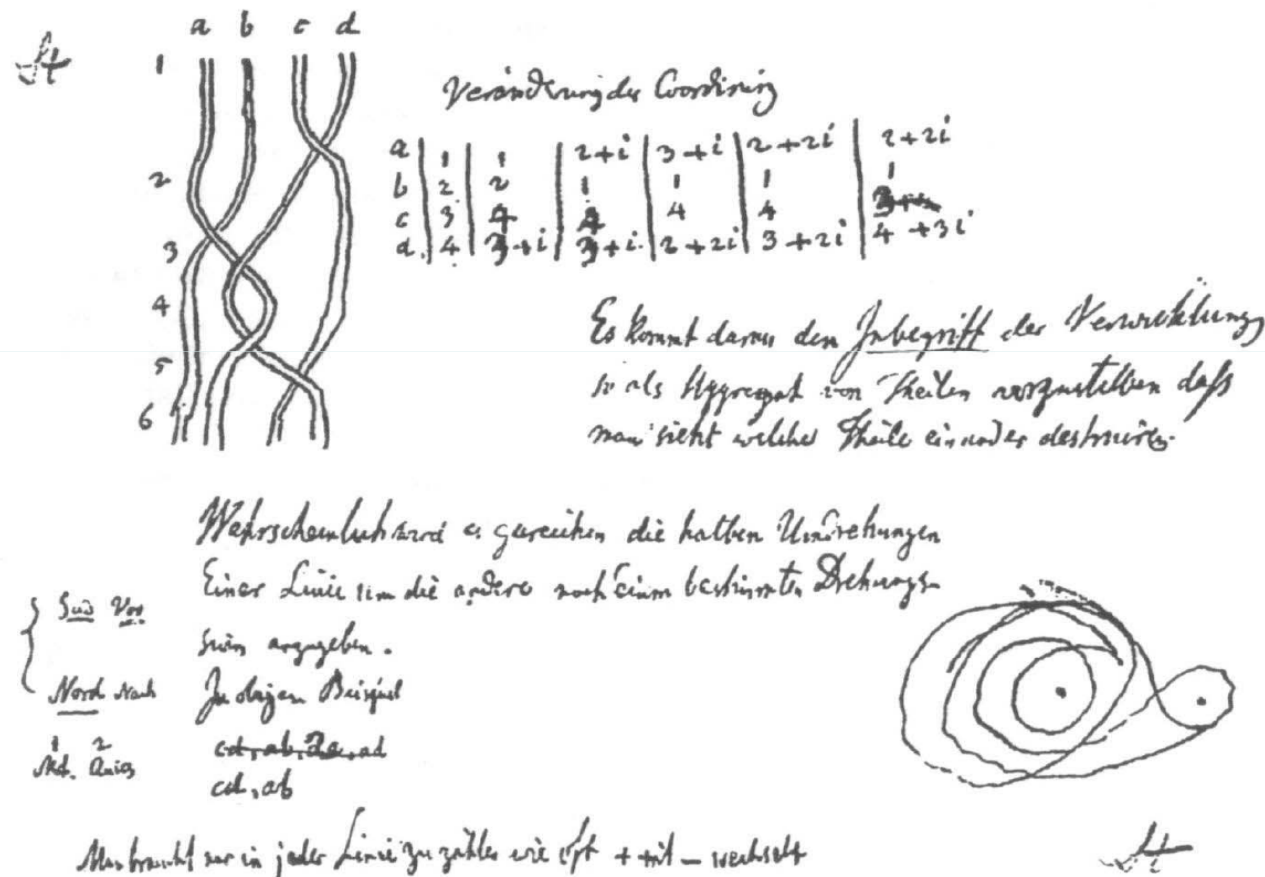 a b c d
1
2
3
4
5
6
Veränderung der Coordinirung
a | 1 | 1 | 2+i | 3+i | 2+2i | 2+2i
b | 2 | 2 | 1 | 1 | 1 | 1
c | 3 | 4 | 4 | 4 | 4 | 3
d. | 4 | 3+i | 3+i. | 2+2i | 3+2i | 4+3i
Es kommt darauf den Inbegriff der Verwicklung
so als Aggregat von Theilen vorzustellen daß
man sieht welche Theile einander destruiren.
Wahrscheinlich wird es gereichen die halben Umdrehungen
Einer Linie um die andere nach einem bestimmten Drehungs-
sinn anzugeben.
Süd Vor
Nord Nach
In obigen Beispiel
1 2
cd, ab, ad
cd, ab
Man braucht nur in jeder Linie zu zählen wie oft + mit - wechselt